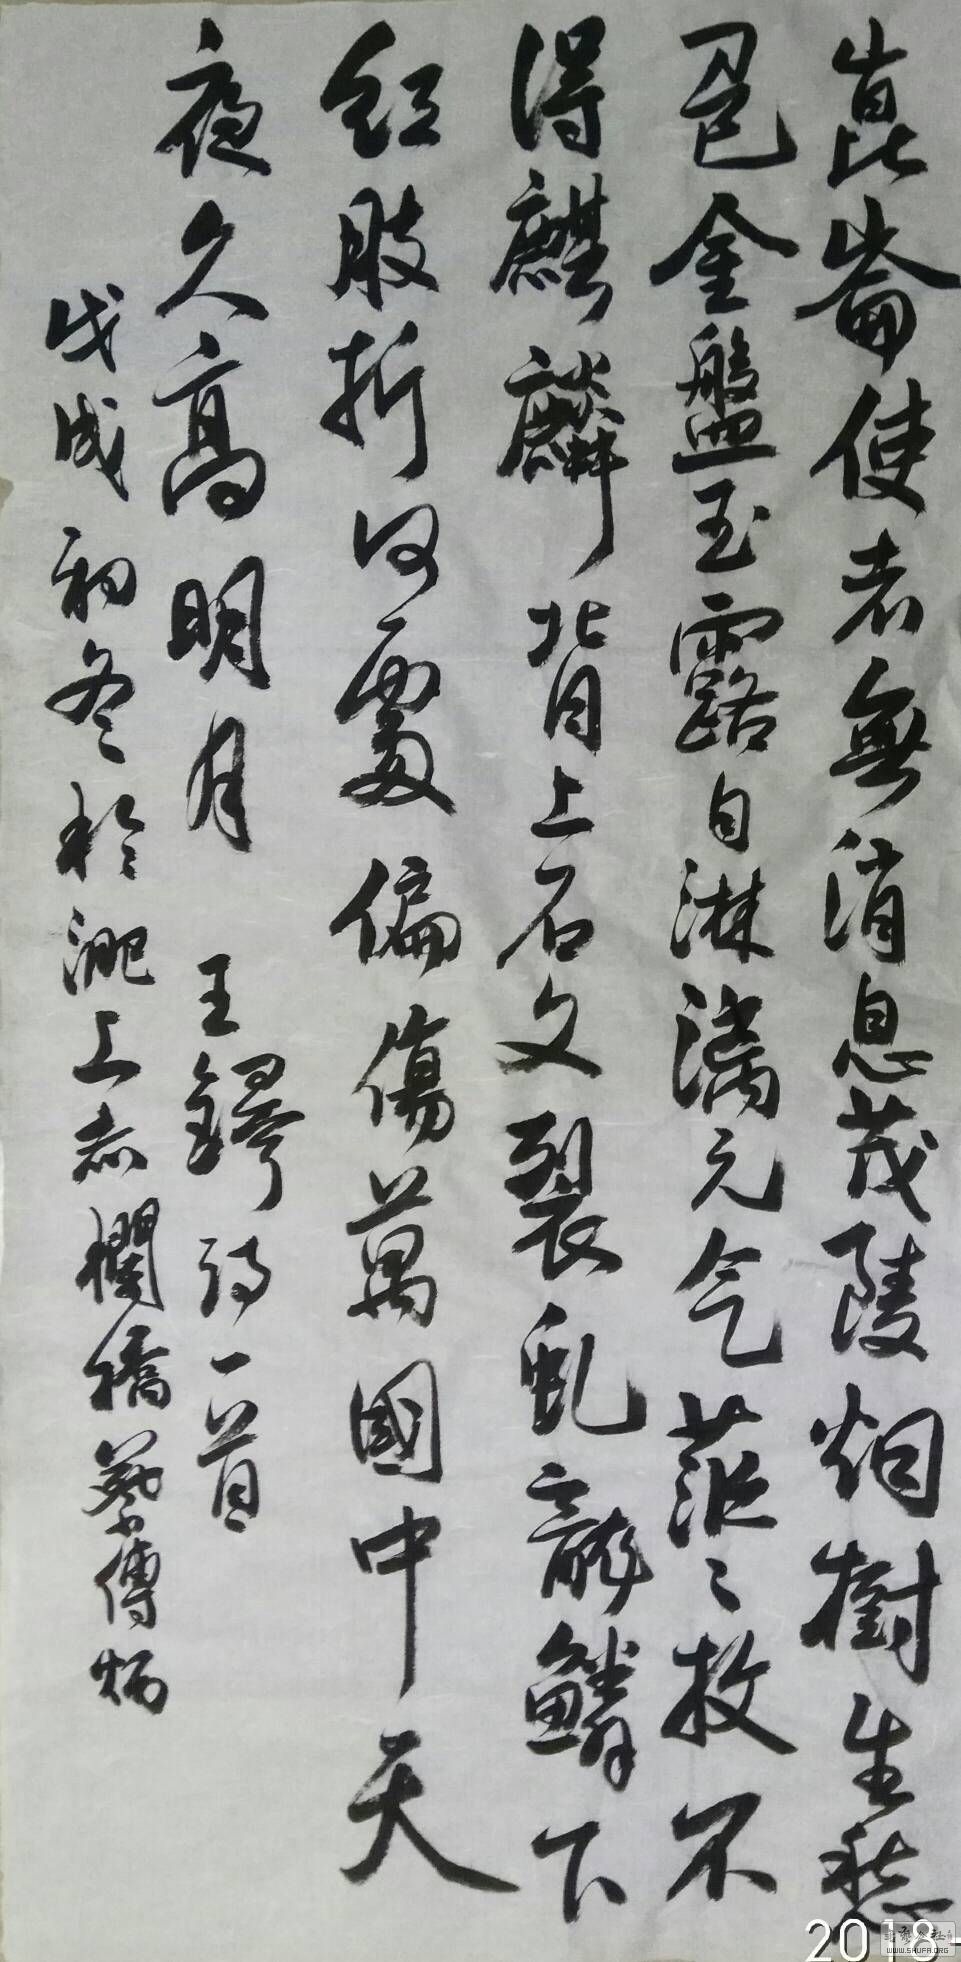 崑崙使者無消息茂陵烟樹生愁
色金盤玉露自淋漓元气茫〻收不
得麒麟背上石文裂虬龍鱗下
紅肢折何處偏傷萬國中天
夜久高明月 王鐸詩一首
戊戌初冬於淝上赤欄橋蔡傅炳
2018-
WWW.SHUFA.ORG